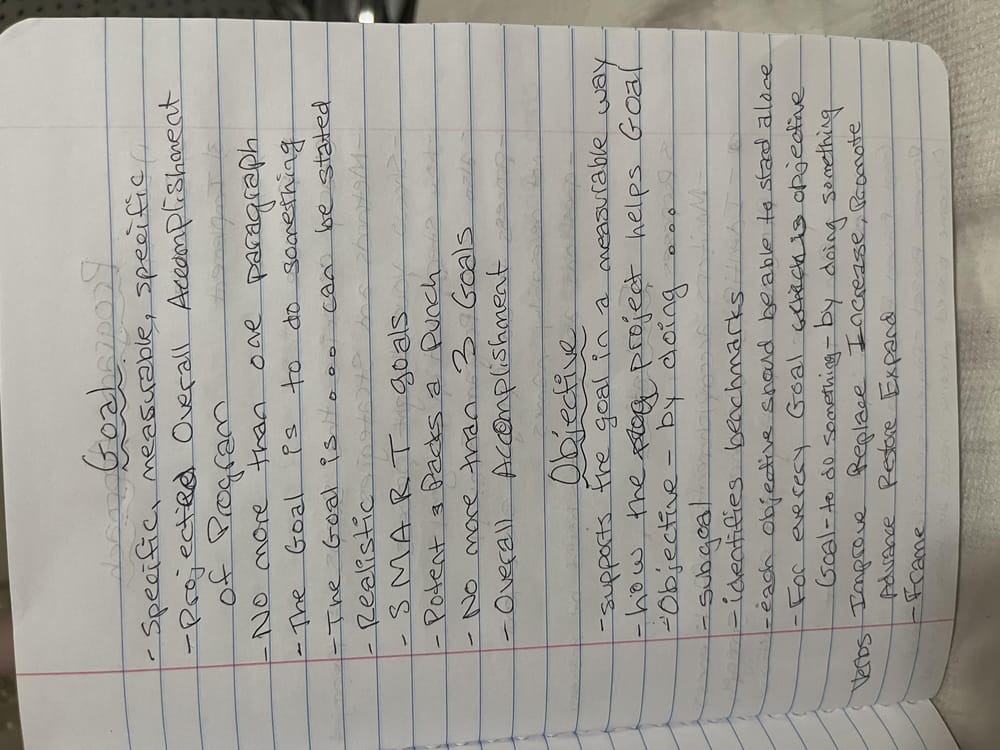 Goal
- Specific, measurable, specific
- Projected Overall Accomplishment
of Program
- No more than one paragraph
- The Goal is to do something
- The Goal is.... can be stated
- Realistic
- SMART goals
- Potent & Packs a Punch
- No more than 3 Goals
- Overall Accomplishment
Objective
- supports the goal in a measurable way
- how the project helps Goal
- Objective - by doing ....
- subgoal
- identifies benchmarks
- each objective should be able to stand alone
- For every Goal is objective
Goal - to do something - by doing something
Verbs Improve Replace Increase, Promote
Advance Restore Expand
- Frame